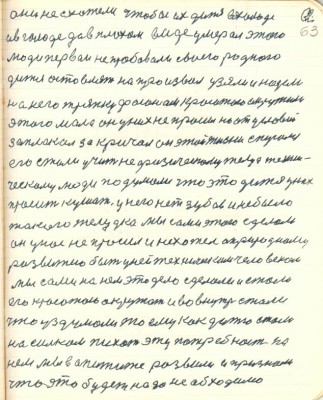 63
они не схотели чтобы их дитя в холоде
и в голоде да в плохом виде умерал этого
люди первая не пробовали своего родного
дитя оставлять на произвол узяли и надели
на него тряпку фаганам красотою окрутили
этого мала он у них не просил поступовой
заплакал закричал он этой жизни спугался
его стали учить не физическому телу техни-
ческому люди подумали что это дитя у них
просит кушать, у него нет зубов и не было
такого желудка мы сами этого сделали
он у нас не просил и не хотел а природному
развитию быть у ней техническим человеком
мы сами на нем это дело сделали и стало
его красотою окружать и во внутр стали
что уздумали то ему как дитю стали
насилком пихать эту потребность на
нем мы в апетите развили и признали
что это будет надо необходимо